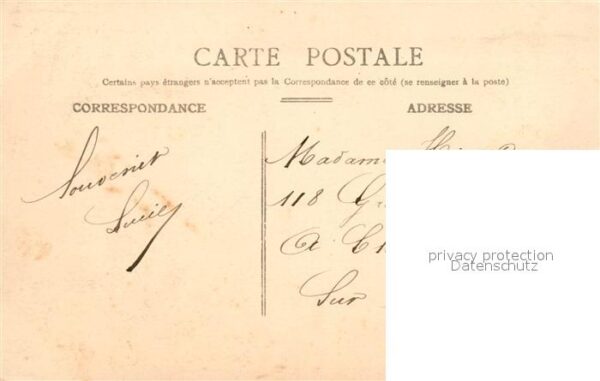 CARTE POSTALE
Certains pays étrangers n'acceptent pas la Correspondance de ce côté (se renseigner à la poste)
CORRESPONDANCE
ADRESSE
Souvenir
Madam
118 G
A C
Sur
privacy protection
Datenschutz